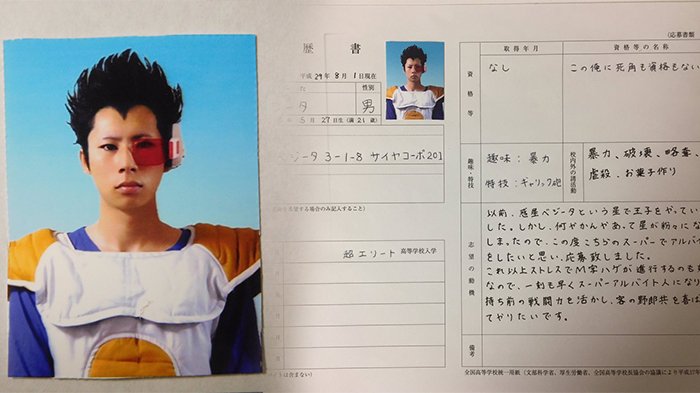 歴 書
平成 29年 8月 1日現在
性別
ータ
男
5月 27日生 (満 21歳)
ジータ 3-1-8 サイヤコーポ201
を希望する場合のみ記入すること)
超エリート 高等学校入学
イトは含まない)
(応募書類
取得年月
資格等の名称
資格等
なし
この俺に死角も資格もない
趣味・特技
趣味:暴力
特技:ギャリック砲
校内外の諸活動
暴力、破壊、略奪、
虐殺、お菓子作り
志望の動機
以前、惑星ベジータという星で王子をやってい
した。しかし、何やかんやあって星が粉々にな
しまったので、この度こちらのスーパーでアルバ
をしたいと思い、応募致しました。
これ以上ストレスでM字ハゲが進行するのも
なので、一刻も早くスーパーアルバイト人になり
持ち前の戦闘力を活かし、客の野郎共を喜ば
てやりたいです。
備考
全国高等学校統一用紙(文部科学省、厚生労働省、全国高等学校長協会の協議により平成17年